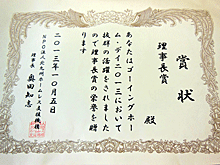 賞状
理事長賞
殿
あなたはゴーイングホー
ム・デイ二〇一三において
抜群の活躍をされました
ので理事長賞の栄誉を贈
ります
二〇一三年一〇月五日
NPO法人北九州ホームレス支援機構
理事長 奥田知志